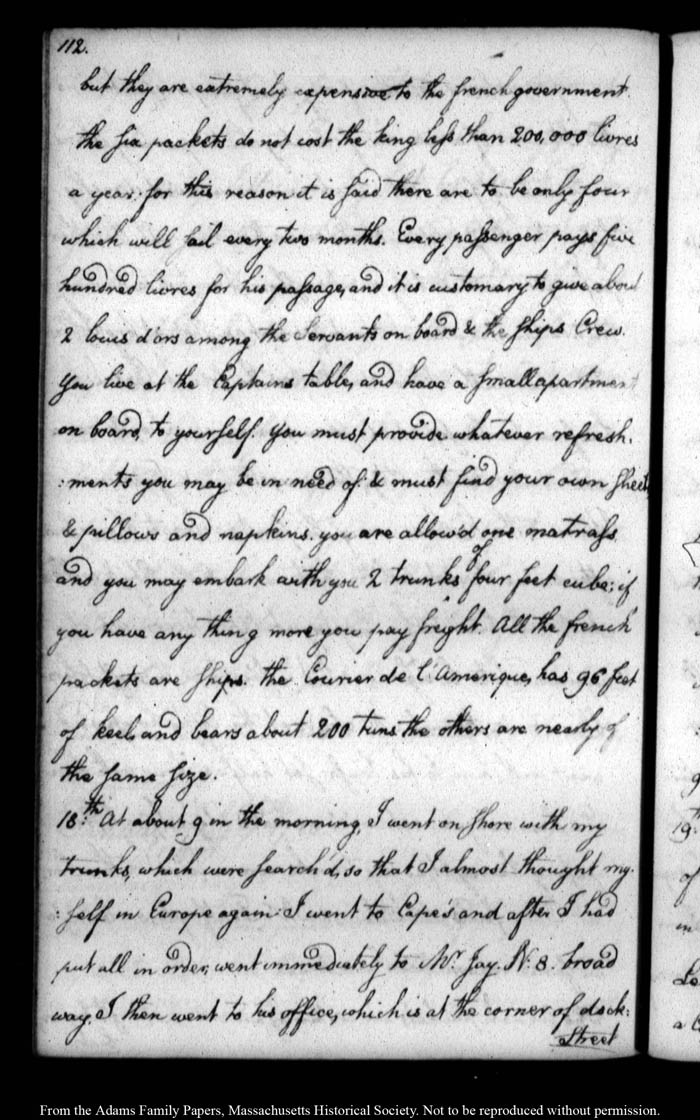 112.
but they are extremely expensive to the french government.
the six packets do not cost the king less than 200,000 livres
a year: for this reason it is said there are to be only four
which will sail every two months. Every passenger pays five
hundred livres for his passage, and it is customary to give about
2 louis d'ors among the Servants on board & the ships Crew.
You live at the Captains table, and have a small apartment
on board, to yourself. you must provide whatever refresh.
:ments you may be in need of: & must find your own sheets
& pillows and napkins. you are allow'd one matrass
and you may embark with you 2 trunks of four feet cube: if
you have any thing more you pay freight. All the french
packets are ships. the Courier de l'Amerique, has 96 feet
of keel, and bears about 200 tuns the others are nearly of
the same size.
18:th At about 9 in the morning, I went on shore with my
trunks, which were search'd, so that I almost thought my-
:self in Europe again: I went to Cape's and after I had
put all in order, went immediately to Mr. Jay. N: 8. broad
way. I then went to his office, which is at the corner of dock:
Street
19.th
of
in
a
From the Adams Family Papers, Massachusetts Historical Society. Not to be reproduced without permission.